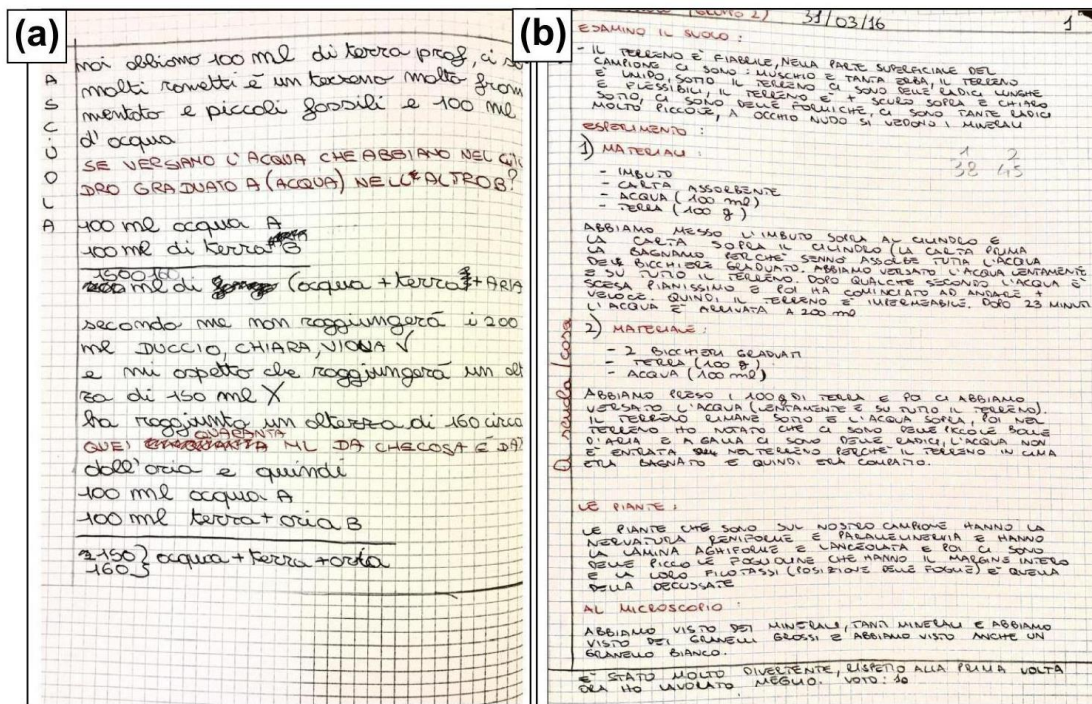 (a)
noi abbiamo 100 ml di terra prof, ci so
molti rametti è un terreno molto fram
mentato e piccoli fossili e 100 ml
d'acqua
SE VERSIANO L'ACQUA CHE ABBIANO NEL CILI
DRO GRADUATO A (ACQUA) NELL'ALTRO B?
ASCIÚOLA
100 ml acqua A
100 ml di terra B
1500 160
ml di (acqua + terra + ARIA
secondo me non raggiungerá i 200
ml DUCCIO, CHIARA, VIOLA √
e mi aspetto che raggiungerá un alt
za di 150 ml X
ha raggiunto un altezza di 160 circa
QUARANTA
QUEI ML DA CHECOSA É DA?
dall'aria e quindi
100 ml acqua A
100 ml terra + aria B
150 } acqua + terra + aria
160 }
(b)
(GRUPPO 2) 31/03/16 1
ESAMINO IL SUOLO :
- IL TERRENO È FRIABILE, NELLA PARTE SUPERFICIALE DEL
CAMPIONE CI SONO : MUSCHIO E TANTA ERBA, IL TERRENO
È UMIDO, SOTTO IL TERRENO CI SONO DELLE RADICI LUNGHE
E FLESSIBILI, IL TERRENO È + SCURO SOPRA E CHIARO
SOTTO, CI SONO DELLE FORMICHE, CI SONO TANTE RADICI
MOLTO PICCOLE, A OCCHIO NUDO SI VEDONO I MINERALI
ESPERIMENTO :
1) MATERIALI :
1 2
38 45
- IMBUTO
- CARTA ASSORBENTE
- ACQUA (100 ml)
- TERRA (100 g)
ABBIAMO MESSO L'IMBUTO SOPRA AL CILINDRO E
LA CARTA SOPRA IL CILINDRO (LA CARTA PRIMA
LA BAGNAMO PERCHÈ SENNO ASSORBE TUTTA L'ACQUA
DEL BICCHIERE GRADUATO. ABBIAMO VERSATO L'ACQUA LENTAMENTE
E SU TUTTO IL TERRENO. DOPO QUALCHE SECONDO L'ACQUA È
SCESA PIANISSIMO E POI HA COMINCIATO AD ANDARE +
VELOCE, QUINDI IL TERRENO È IMPERMEABILE. DOPO 23 MINUTI
L'ACQUA È ARRIVATA A 200 ml
2) MATERIALE :
- 2 BICCHIERI GRADUATI
- TERRA (100 g)
- ACQUA (100 ml)
A scuola / casa
ABBIAMO PRESO I 100 g DI TERRA E POI CI ABBIAMO
VERSATO L'ACQUA (LENTAMENTE E SU TUTTO IL TERRENO).
IL TERRENO RIMANE SOTTO E L'ACQUA SOPRA, POI NEL
TERRENO HO NOTATO CHE CI SONO DELLE PICCOLE BOLLE
D'ARIA E A GALLA CI SONO DELLE RADICI, L'ACQUA NON
È ENTRATA NEL TERRENO PERCHÈ IL TERRENO IN CIMA
ERA BAGNATO E QUINDI ERA COMPATTO.
LE PIANTE :
LE PIANTE CHE SONO SUL NOSTRO CAMPIONE HANNO LA
NERVATURA RENIFORME E PARALLELINERVIA E HANNO
LA LAMINA AGHIFORME E LANCEOLATA E POI CI SONO
DELLE PICCOLE FOGLIOLINE CHE HANNO IL MARGINE INTERO
E LA LORO FILOTASSI (POSIZIONE DELLE FOGLIE) È QUELLA
DELLA DECUSSATE
AL MICROSCOPIO :
ABBIAMO VISTO DEI MINERALI, TANTI MINERALI E ABBIAMO
VISTO DEI GRANELLI GROSSI E ABBIAMO VISTO ANCHE UN
GRANELLO BIANCO.
E' STATO MOLTO DIVERTENTE, RISPETTO ALLA PRIMA VOLTA
ORA HO LAVORATO MEGLIO. VOTO : 10